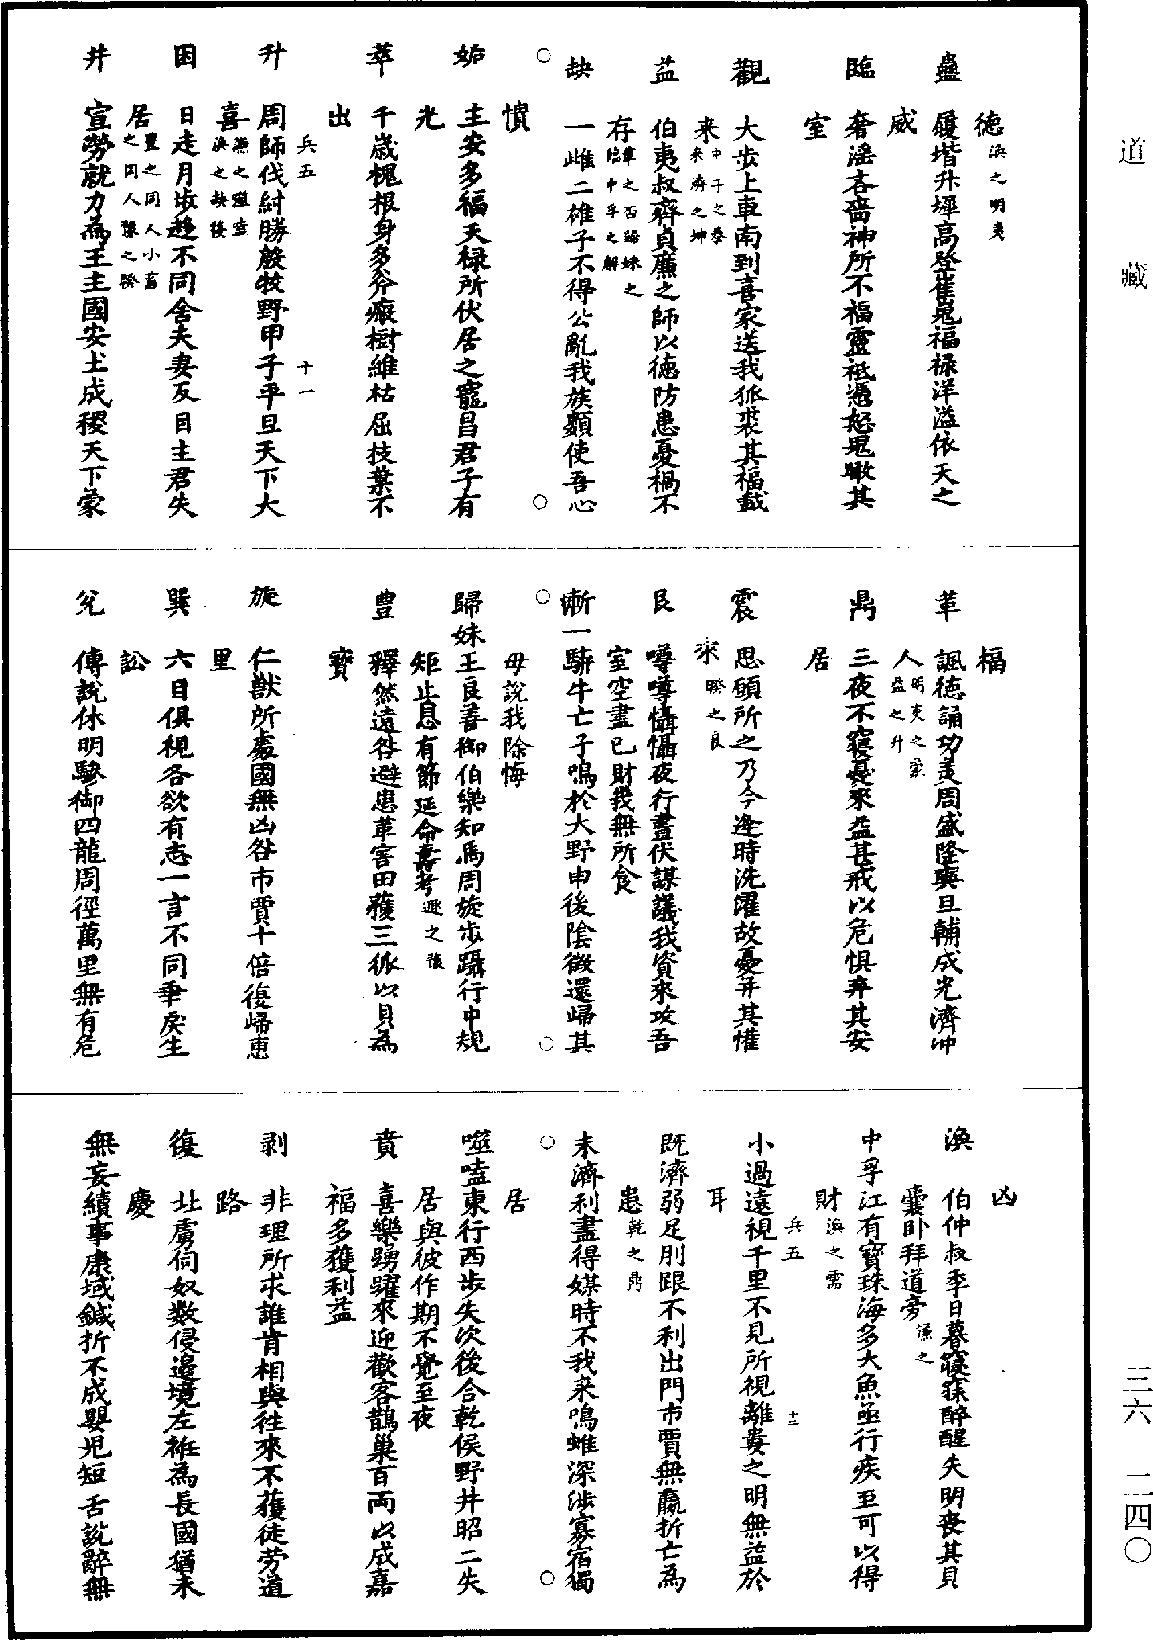 道藏
三六 二四〇
德渙之明夷
蠱 履堦升墀高登崔嵬福祿洋溢依天之
威
臨 奢淫吝嗇神所不福靈祇憑怒鬼瞰其
室
觀 大步上車南到喜家送我狐裘其福載
來中孚之泰未濟之坤
益 伯夷叔齊貞廉之師以德防患憂禍不
存革之否歸妹之臨中孚之解
缺 一雌二雄子不得公亂我族類使吾心
憒
姤 主安多福天祿所伏居之寵昌君子有
光
萃 千歲槐根身多斧瘢樹維枯屈枝葉不
出
兵五 十一
升 周師伐紂勝殷牧野甲子平旦天下大
喜
困 日走月步趍不同舍夫妻反目主君失
居
井 宣勞就力為王主國安土成稷天下蒙
福
革 諷德誦功美周盛隆奭旦輔成光濟沖
人明夷之蒙益之升
鼎 三夜不寢憂來益甚戒以危懼弃其安
居
震 思願所之乃今逢時洗濯故憂弃其懽
來睽之艮
艮 噂噂囁囁夜行晝伏謀議我資來攻吾
室空盡己財幾無所食
漸 一騂牛亡子鳴於大野申後陰微還歸其
母說我除悔
歸妹 王良善御伯樂知馬周旋步躡行中規
矩止息有節延命壽考遯之復
豊 釋然遠咎避患革害田獲三狐以貝為
寶
旋 仁獸所處國無凶咎市賈十倍復歸惠
里
巽 六目俱視各欲有志一言不同乖戾生
訟
兌 傳說休明驂御四龍周徑萬里無有危
凶
渙 伯仲叔季日暮寢寐醉醒失明喪其貝
囊卧拜道旁
中孚 江有寶珠海多大魚亟行疾至可以得
財渙之需
兵五 十二
小過 遠視千里不見所視離婁之明無益於
耳
既濟 弱足刖跟不利出門市賈無贏折亡為
患乾之鼎
未濟 利盡得媒時不我來鳴雌深涉寡宿獨
居
噬嗑 東行西步失次後合乾侯野井昭二失
居與彼作期不覺至夜
賁 喜樂踴躍來迎歡客鵲巢百兩以成嘉
福多獲利益
剥 非理所求誰肯相與徃來不獲徒勞道
路
復 北虜伺奴數侵邊境左袵為長國猶未
慶
無妄 續事康域鍼折不成嬰兒短舌說辭無